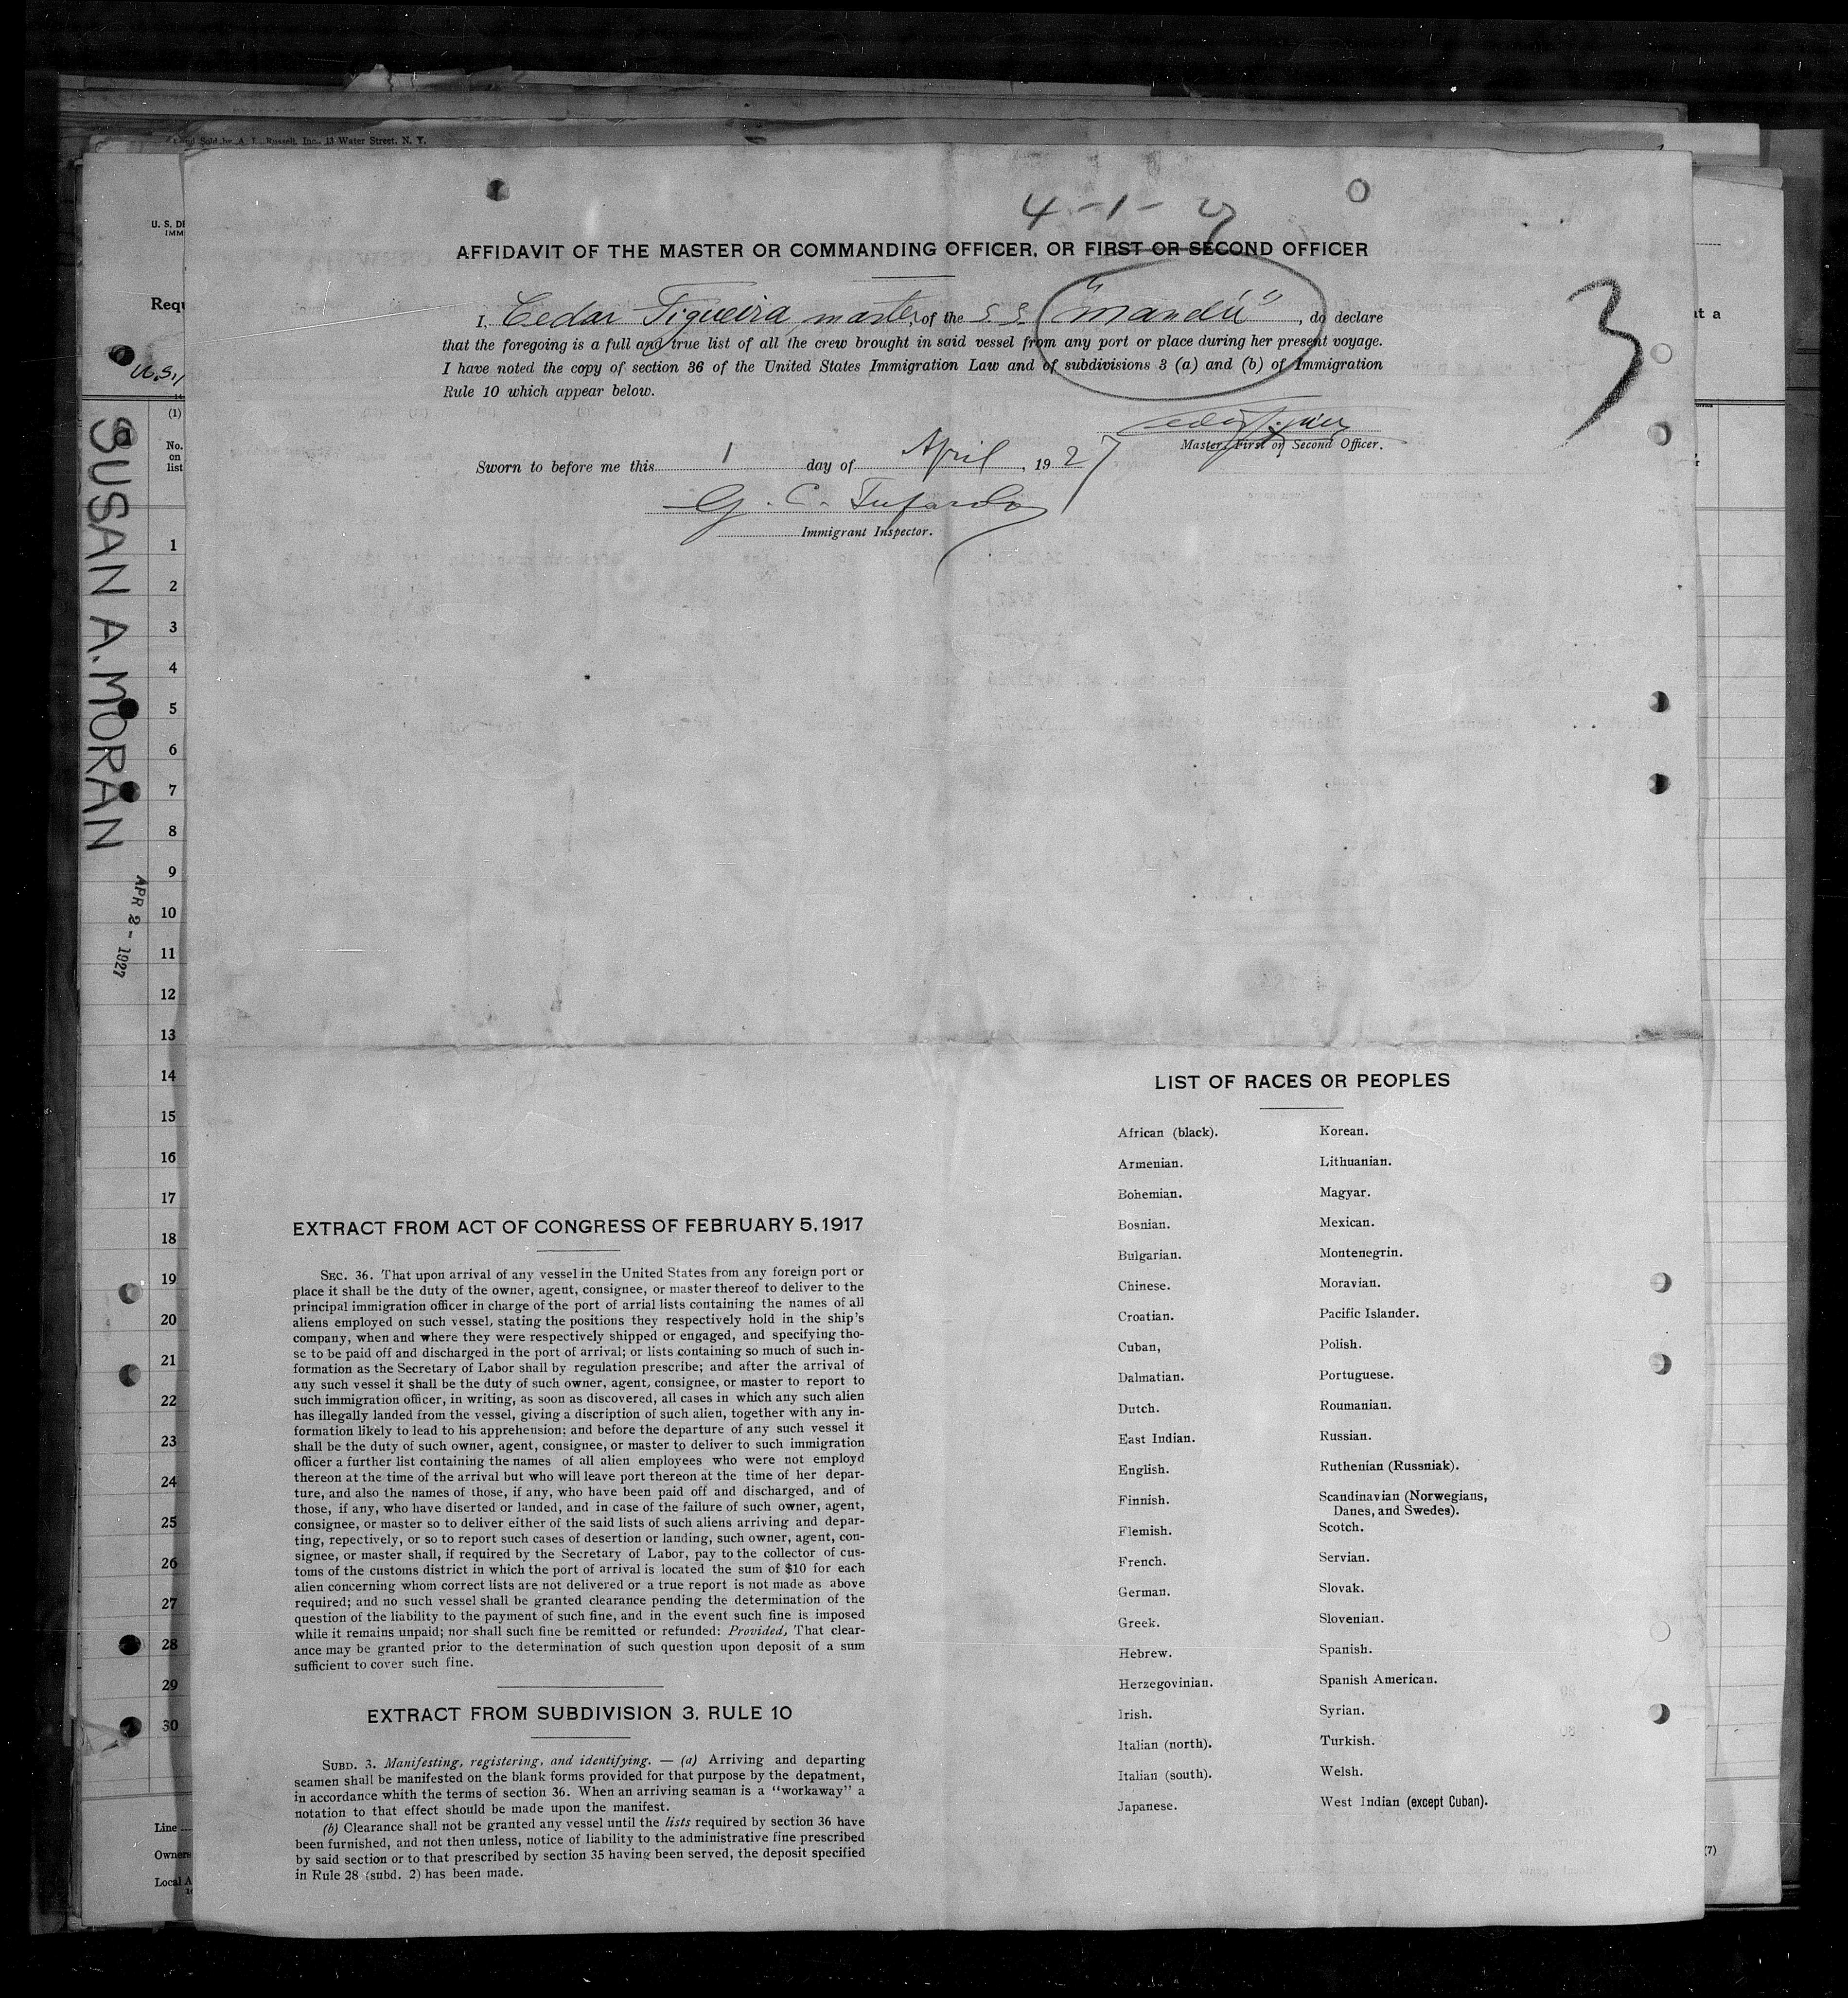 and Sold by A. L. Russell, Inc., 13 Water Street, N. Y.
4-1-27
AFFIDAVIT OF THE MASTER OR COMMANDING OFFICER, OR FIRST OR SECOND OFFICER
I, Cedar Figueira, master, of the S.S. "Mandú", do declare
that the foregoing is a full and true list of all the crew brought in said vessel from any port or place during her present voyage.
I have noted the copy of section 36 of the United States Immigration Law and of subdivisions 3 (a) and (b) of Immigration
Rule 10 which appear below.
3
Master, First or Second Officer.
Sworn to before me this 1 day of April, 1927
Immigrant Inspector.
U. S. DE
IMM
Requ
at a
(1)
No.
on
list
SUSAN A. MORAN
APR 2 - 1927
1
2
3
4
5
6
7
8
9
10
11
12
13
14
15
16
17
18
19
20
21
22
23
24
25
26
27
28
29
30
Line
Owners
Local A
(7)
EXTRACT FROM ACT OF CONGRESS OF FEBRUARY 5, 1917
SEC. 36. That upon arrival of any vessel in the United States from any foreign port or
place it shall be the duty of the owner, agent, consignee, or master thereof to deliver to the
principal immigration officer in charge of the port of arrial lists containing the names of all
aliens employed on such vessel, stating the positions they respectively hold in the ship's
company, when and where they were respectively shipped or engaged, and specifying tho-
se to be paid off and discharged in the port of arrival; or lists containing so much of such in-
formation as the Secretary of Labor shall by regulation prescribe; and after the arrival of
any such vessel it shall be the duty of such owner, agent, consignee, or master to report to
such immigration officer, in writing, as soon as discovered, all cases in which any such alien
has illegally landed from the vessel, giving a discription of such alien, together with any in-
formation likely to lead to his apprehension; and before the departure of any such vessel it
shall be the duty of such owner, agent, consignee, or master to deliver to such immigration
officer a further list containing the names of all alien employees who were not employd
thereon at the time of the arrival but who will leave port thereon at the time of her depar-
ture, and also the names of those, if any, who have been paid off and discharged, and of
those, if any, who have diserted or landed, and in case of the failure of such owner, agent,
consignee, or master so to deliver either of the said lists of such aliens arriving and depar-
ting, repectively, or so to report such cases of desertion or landing, such owner, agent, con-
signee, or master shall, if required by the Secretary of Labor, pay to the collector of cus-
toms of the customs district in which the port of arrival is located the sum of $10 for each
alien concerning whom correct lists are not delivered or a true report is not made as above
required; and no such vessel shall be granted clearance pending the determination of the
question of the liability to the payment of such fine, and in the event such fine is imposed
while it remains unpaid; nor shall such fine be remitted or refunded: Provided, That clear-
ance may be granted prior to the determination of such question upon deposit of a sum
sufficient to cover such fine.
EXTRACT FROM SUBDIVISION 3, RULE 10
SUBD. 3. Manifesting, registering, and identifying. — (a) Arriving and departing
seamen shall be manifested on the blank forms provided for that purpose by the depatment,
in accordance whith the terms of section 36. When an arriving seaman is a "workaway" a
notation to that effect should be made upon the manifest.
(b) Clearance shall not be granted any vessel until the lists required by section 36 have
been furnished, and not then unless, notice of liability to the administrative fine prescribed
by said section or to that prescribed by section 35 having been served, the deposit specified
in Rule 28 (subd. 2) has been made.
LIST OF RACES OR PEOPLES
African (black).
Armenian.
Bohemian.
Bosnian.
Bulgarian.
Chinese.
Croatian.
Cuban,
Dalmatian.
Dutch.
East Indian.
English.
Finnish.
Flemish.
French.
German.
Greek.
Hebrew.
Herzegovinian.
Irish.
Italian (north).
Italian (south).
Japanese.
Korean.
Lithuanian.
Magyar.
Mexican.
Montenegrin.
Moravian.
Pacific Islander.
Polish.
Portuguese.
Roumanian.
Russian.
Ruthenian (Russniak).
Scandinavian (Norwegians,
Danes, and Swedes).
Scotch.
Servian.
Slovak.
Slovenian.
Spanish.
Spanish American.
Syrian.
Turkish.
Welsh.
West Indian (except Cuban).